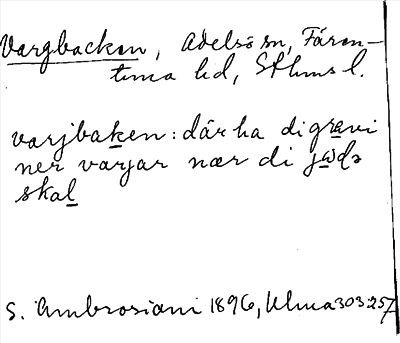 Vargbacken, Adelsö sn, Fären-
tuna hd, Sthms l.
varjbaken: där ha di gravi
ner varjar nær di jwdə
skal
S. Ambrosiani 1896, Ulma 303:257